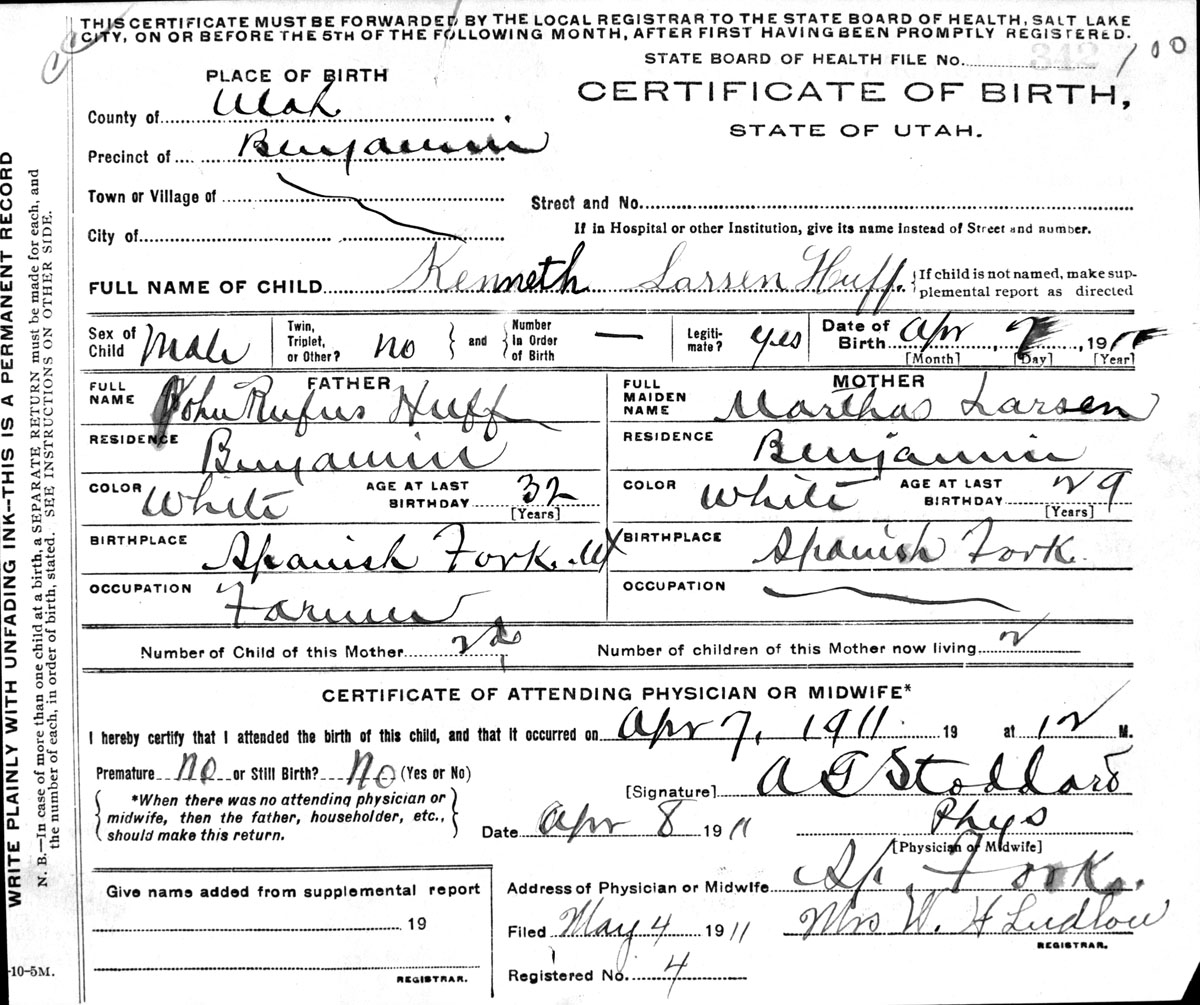 THIS CERTIFICATE MUST BE FORWARDED BY THE LOCAL REGISTRAR TO THE STATE BOARD OF HEALTH, SALT LAKE
CITY, ON OR BEFORE THE 5TH OF THE FOLLOWING MONTH, AFTER FIRST HAVING BEEN PROMPTLY REGISTERED.
STATE BOARD OF HEALTH FILE No. 342 100
PLACE OF BIRTH
CERTIFICATE OF BIRTH,
STATE OF UTAH.
County of Utah
Precinct of Benjamin
Town or Village of
Street and No.
City of
If in Hospital or other Institution, give its name instead of Street and number.
FULL NAME OF CHILD Kenneth Larsen Huff. {If child is not named, make sup-
plemental report as directed
Sex of Child Male Twin, Triplet, or Other? no } and { Number In Order of Birth — Legiti-mate? yes Date of Birth Apr 7, 1911
[Month] [Day] [Year]
FATHER
FULL NAME John Rufus Huff
MOTHER
FULL MAIDEN NAME Martha Larsen
RESIDENCE Benjamin
RESIDENCE Benjamin
COLOR White AGE AT LAST BIRTHDAY 32 [Years]
COLOR White AGE AT LAST BIRTHDAY 29 [Years]
BIRTHPLACE Spanish Fork. Ut
BIRTHPLACE Spanish Fork.
OCCUPATION Farmer
OCCUPATION
Number of Child of this Mother 2d Number of children of this Mother now living 2
CERTIFICATE OF ATTENDING PHYSICIAN OR MIDWIFE*
I hereby certify that I attended the birth of this child, and that it occurred on Apr 7, 1911 19 at 12 M.
Premature No or Still Birth? No (Yes or No)
[Signature] A G Stoddard
{*When there was no attending physician or
midwife, then the father, householder, etc.,
should make this return.}
Date Apr 8 1911 Phys
[Physician or Midwife]
Address of Physician or Midwife Sp. Fork.
Filed May 4 1911 Mrs W. H Ludlow
REGISTRAR.
Registered No. 4
Give name added from supplemental report
19
REGISTRAR.
-10-5M.
WRITE PLAINLY WITH UNFADING INK--THIS IS A PERMANENT RECORD
N. B.—In case of more than one child at a birth, a SEPARATE RETURN must be made for each, and
the number of each, in order of birth, stated. SEE INSTRUCTIONS ON OTHER SIDE.